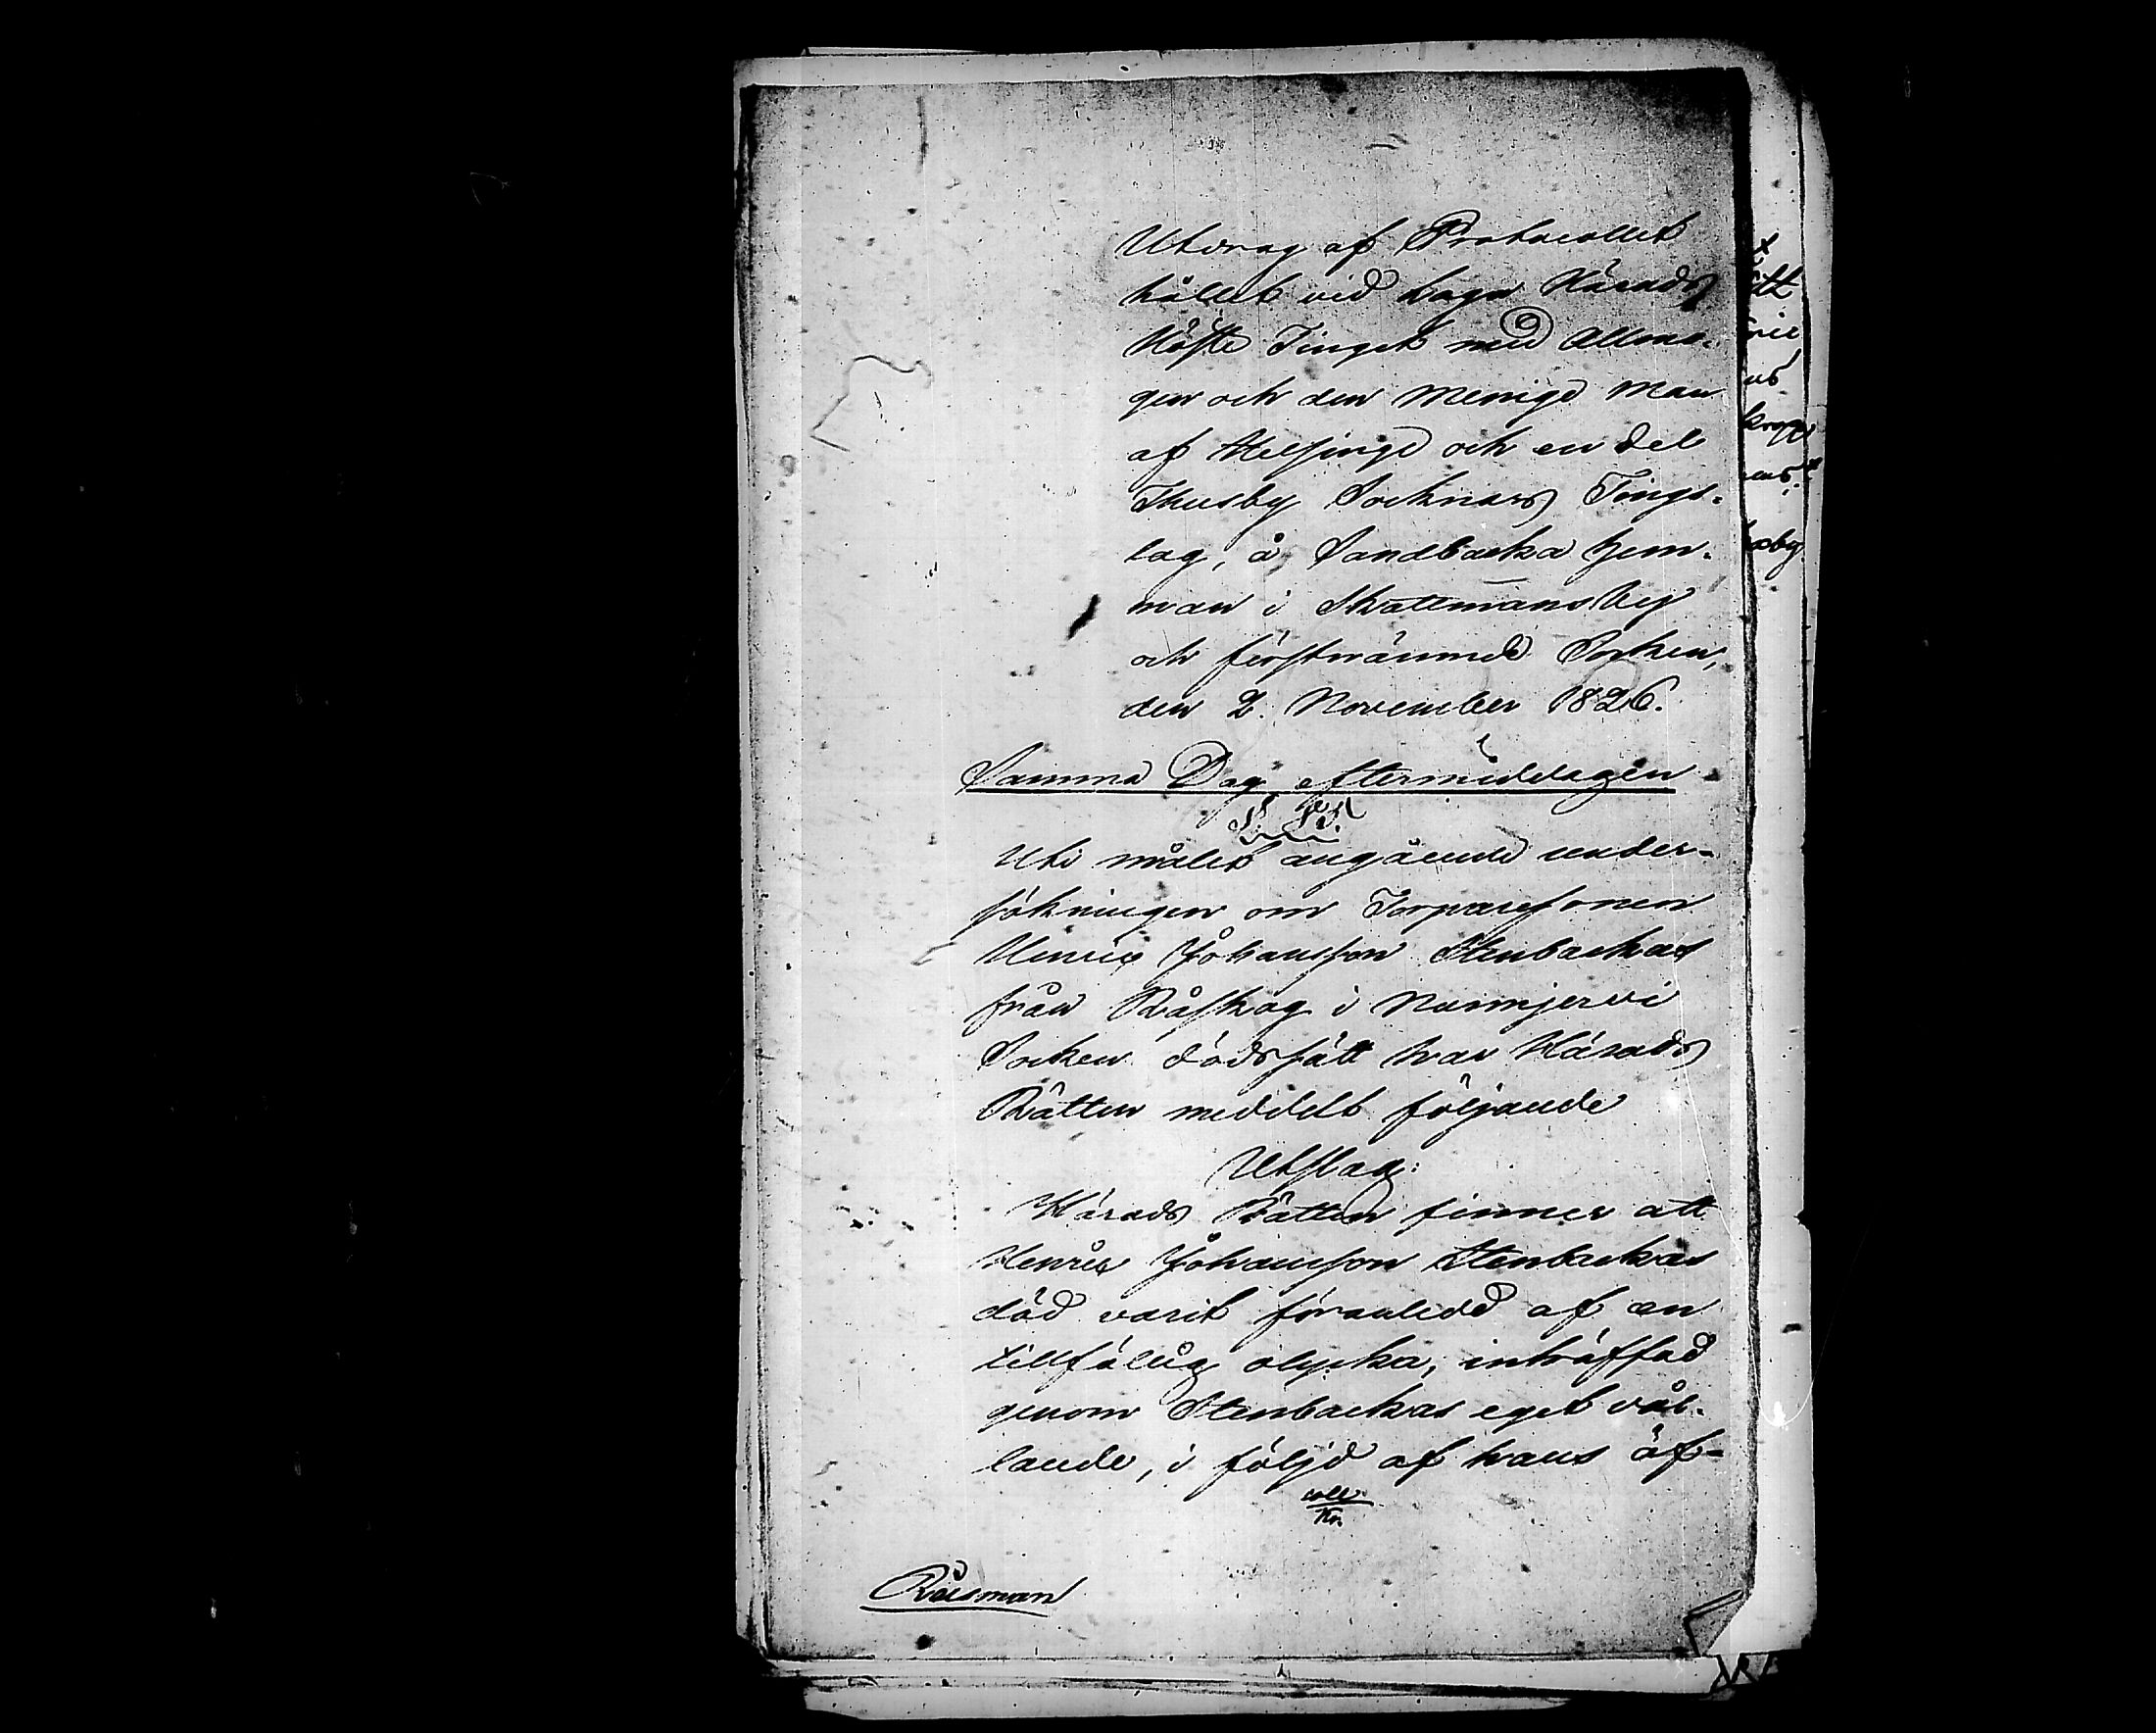 Utdrag af Protocollet
hållet vid Laga Härads
Höste Tinget med Allmo-
gen och den Menige Man
af Helsinge och en del
Thusby Socknars Tings-
lag, å Sandbacka hem-
man i Skattmans by
och förstnämnde Socken,
den 2. November 1826.
Samma Dag eftermiddagen
§.
Uti målet angående under-
sökningen om Torparesonen
Henric Johansson Stenbackas
från Råskog i Nurmijervi
Socken dödssätt har Härads
Rätten meddelt följande
Utslag:
Härads Rätten finner att
Henric Johansson Stenbackas
död varit föranledd af en
tillfällig olycka, inträffad
genom Stenbackas eget vål-
lande, i följd af hans öf-
coll.
ått
ric